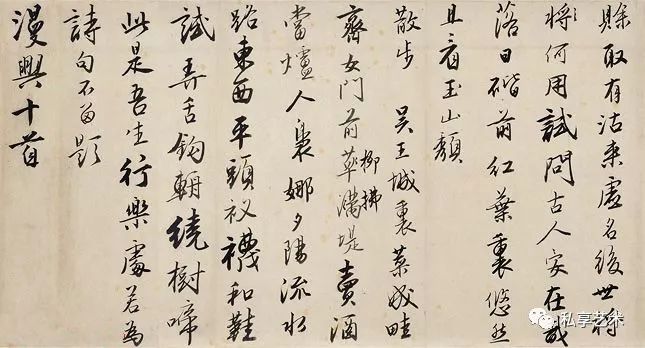 賖取有沽来虚名後世将
將何用試問古人安在哉
落日階前紅葉裏悠然
且看玉山頽
散步 吴王城裏菜成畦
齊女門前草滿堤賣酒
柳拂
當爐人裊娜夕陽流水
路東西平頭衩襪和鞋
試弄舌鉤輈繞樹啼
此是吾生行樂處若為
詩句不留題
漫興十首
私享艺术